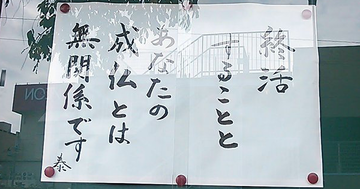 終活
することと
あなたの
成仏とは
無関係です
泰